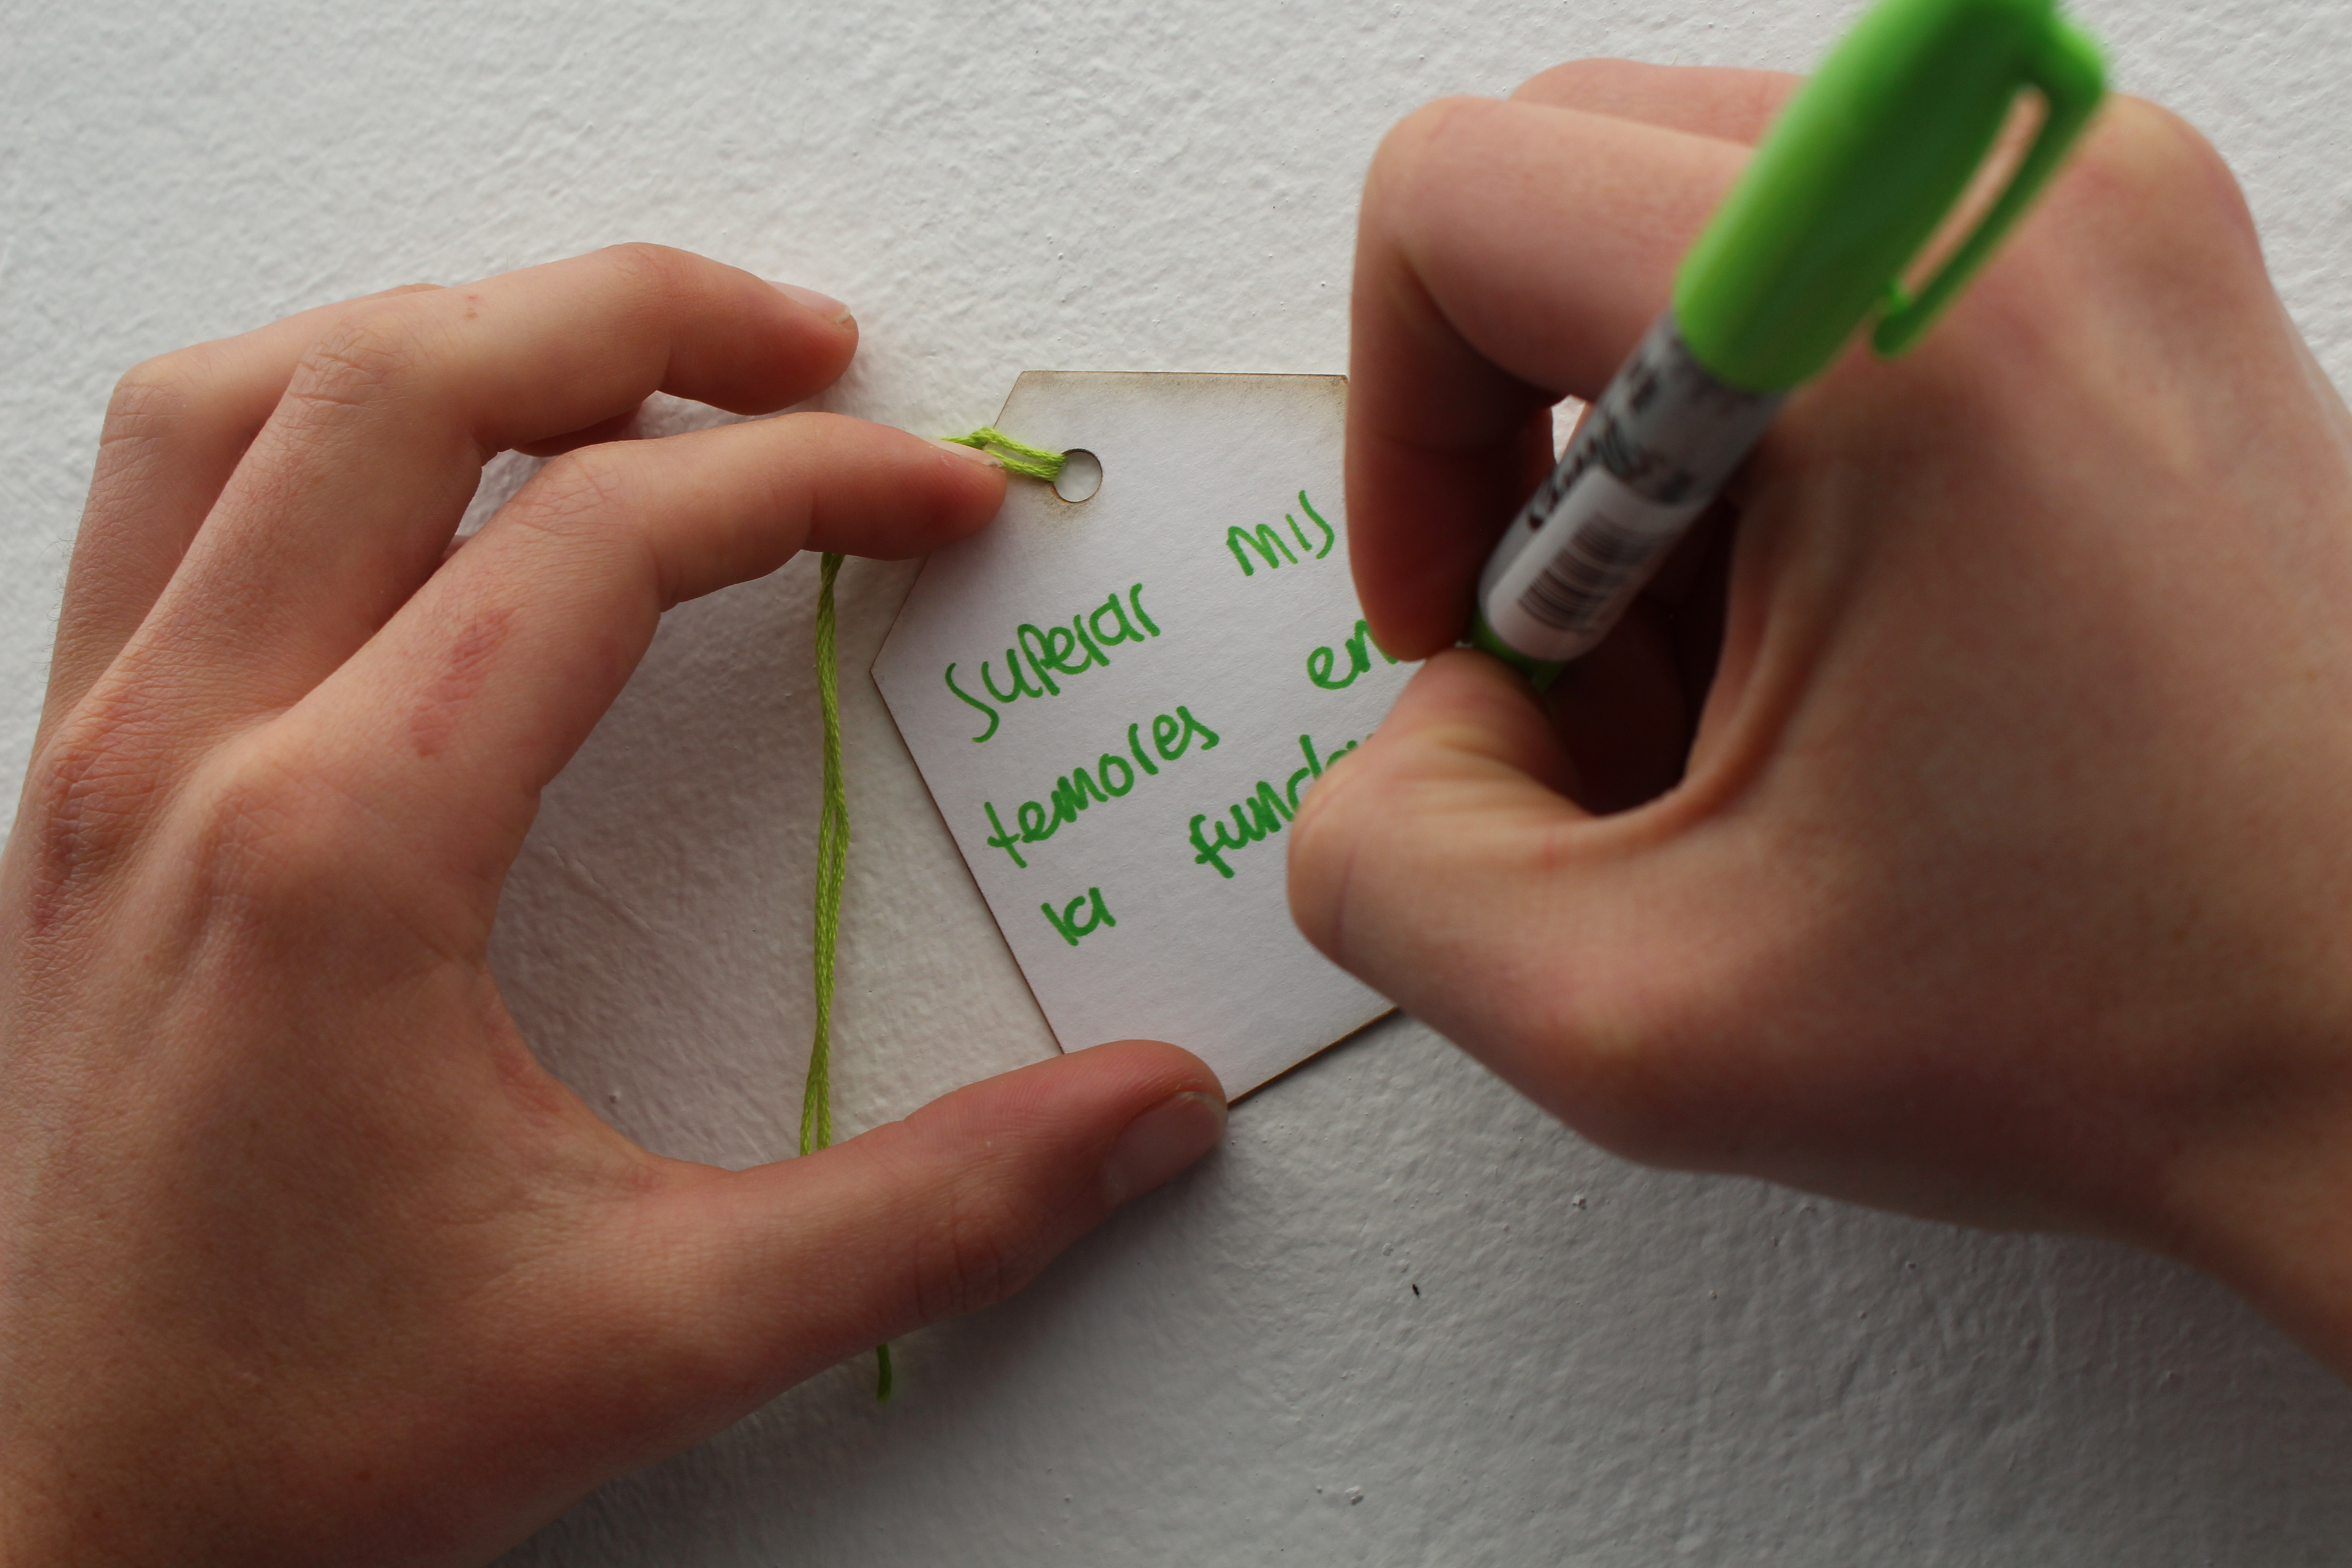 Superar mis
temores en
la